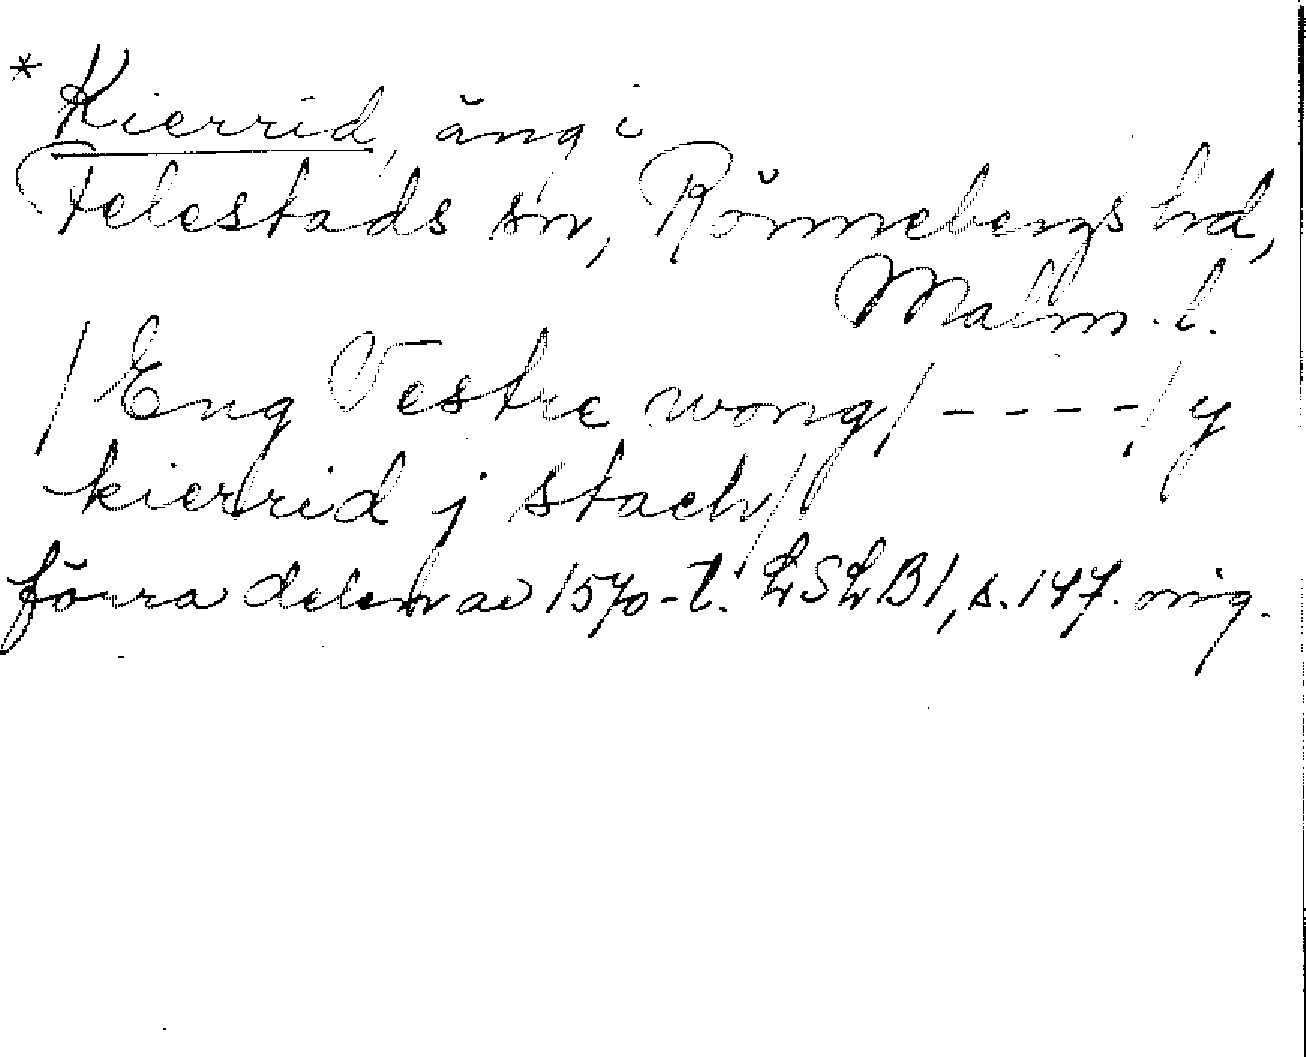 * Kierrid, äng i
Felestads sn, Rönnebergs hd,
Malm. l.
/ Eng Vestre wong / - - - - / y
kierrid j stach /
förra delen av 1570-t. LSLB1, s. 147. mig.